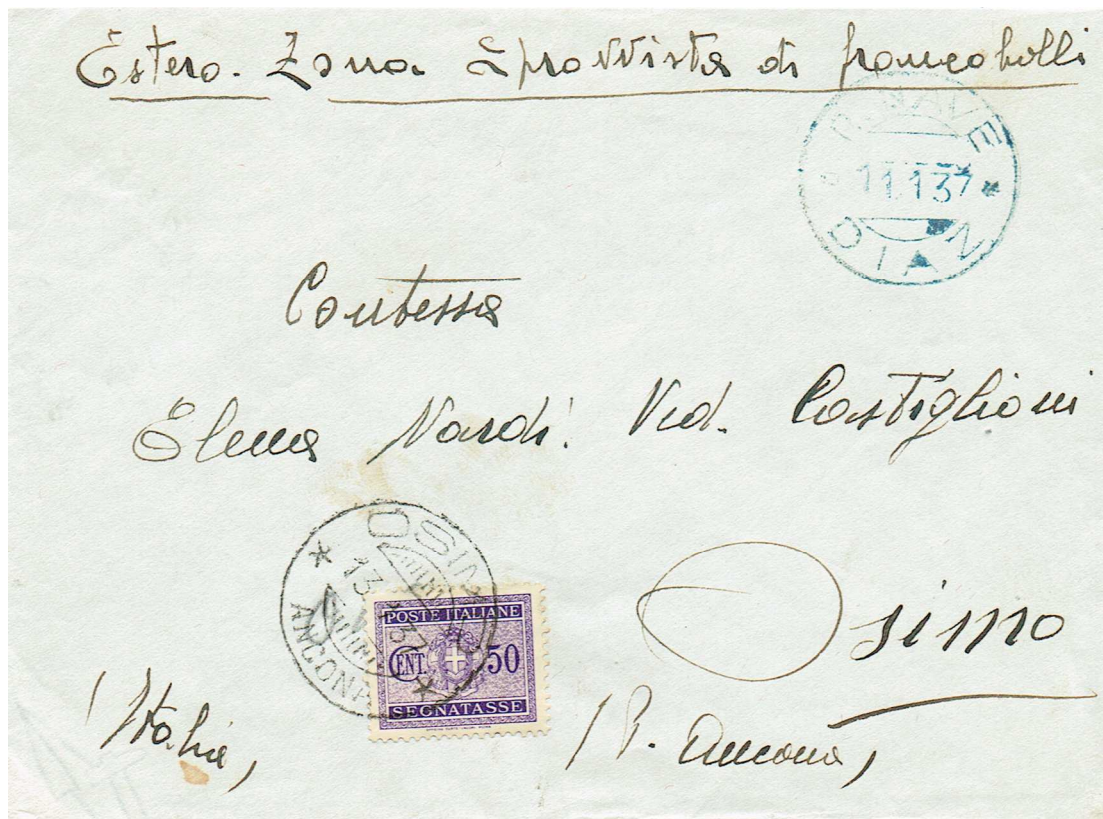 Estero. Zona Sprovvista di francobolli
R. NAVE
11.1.37
Contessa
Elena Nardi Ved. Castiglioni
OSIMO
13.1.37
ANCONA
POSTE ITALIANE
CENT. 50
SEGNATASSE
Osimo
(Italia, (P. Ancona,